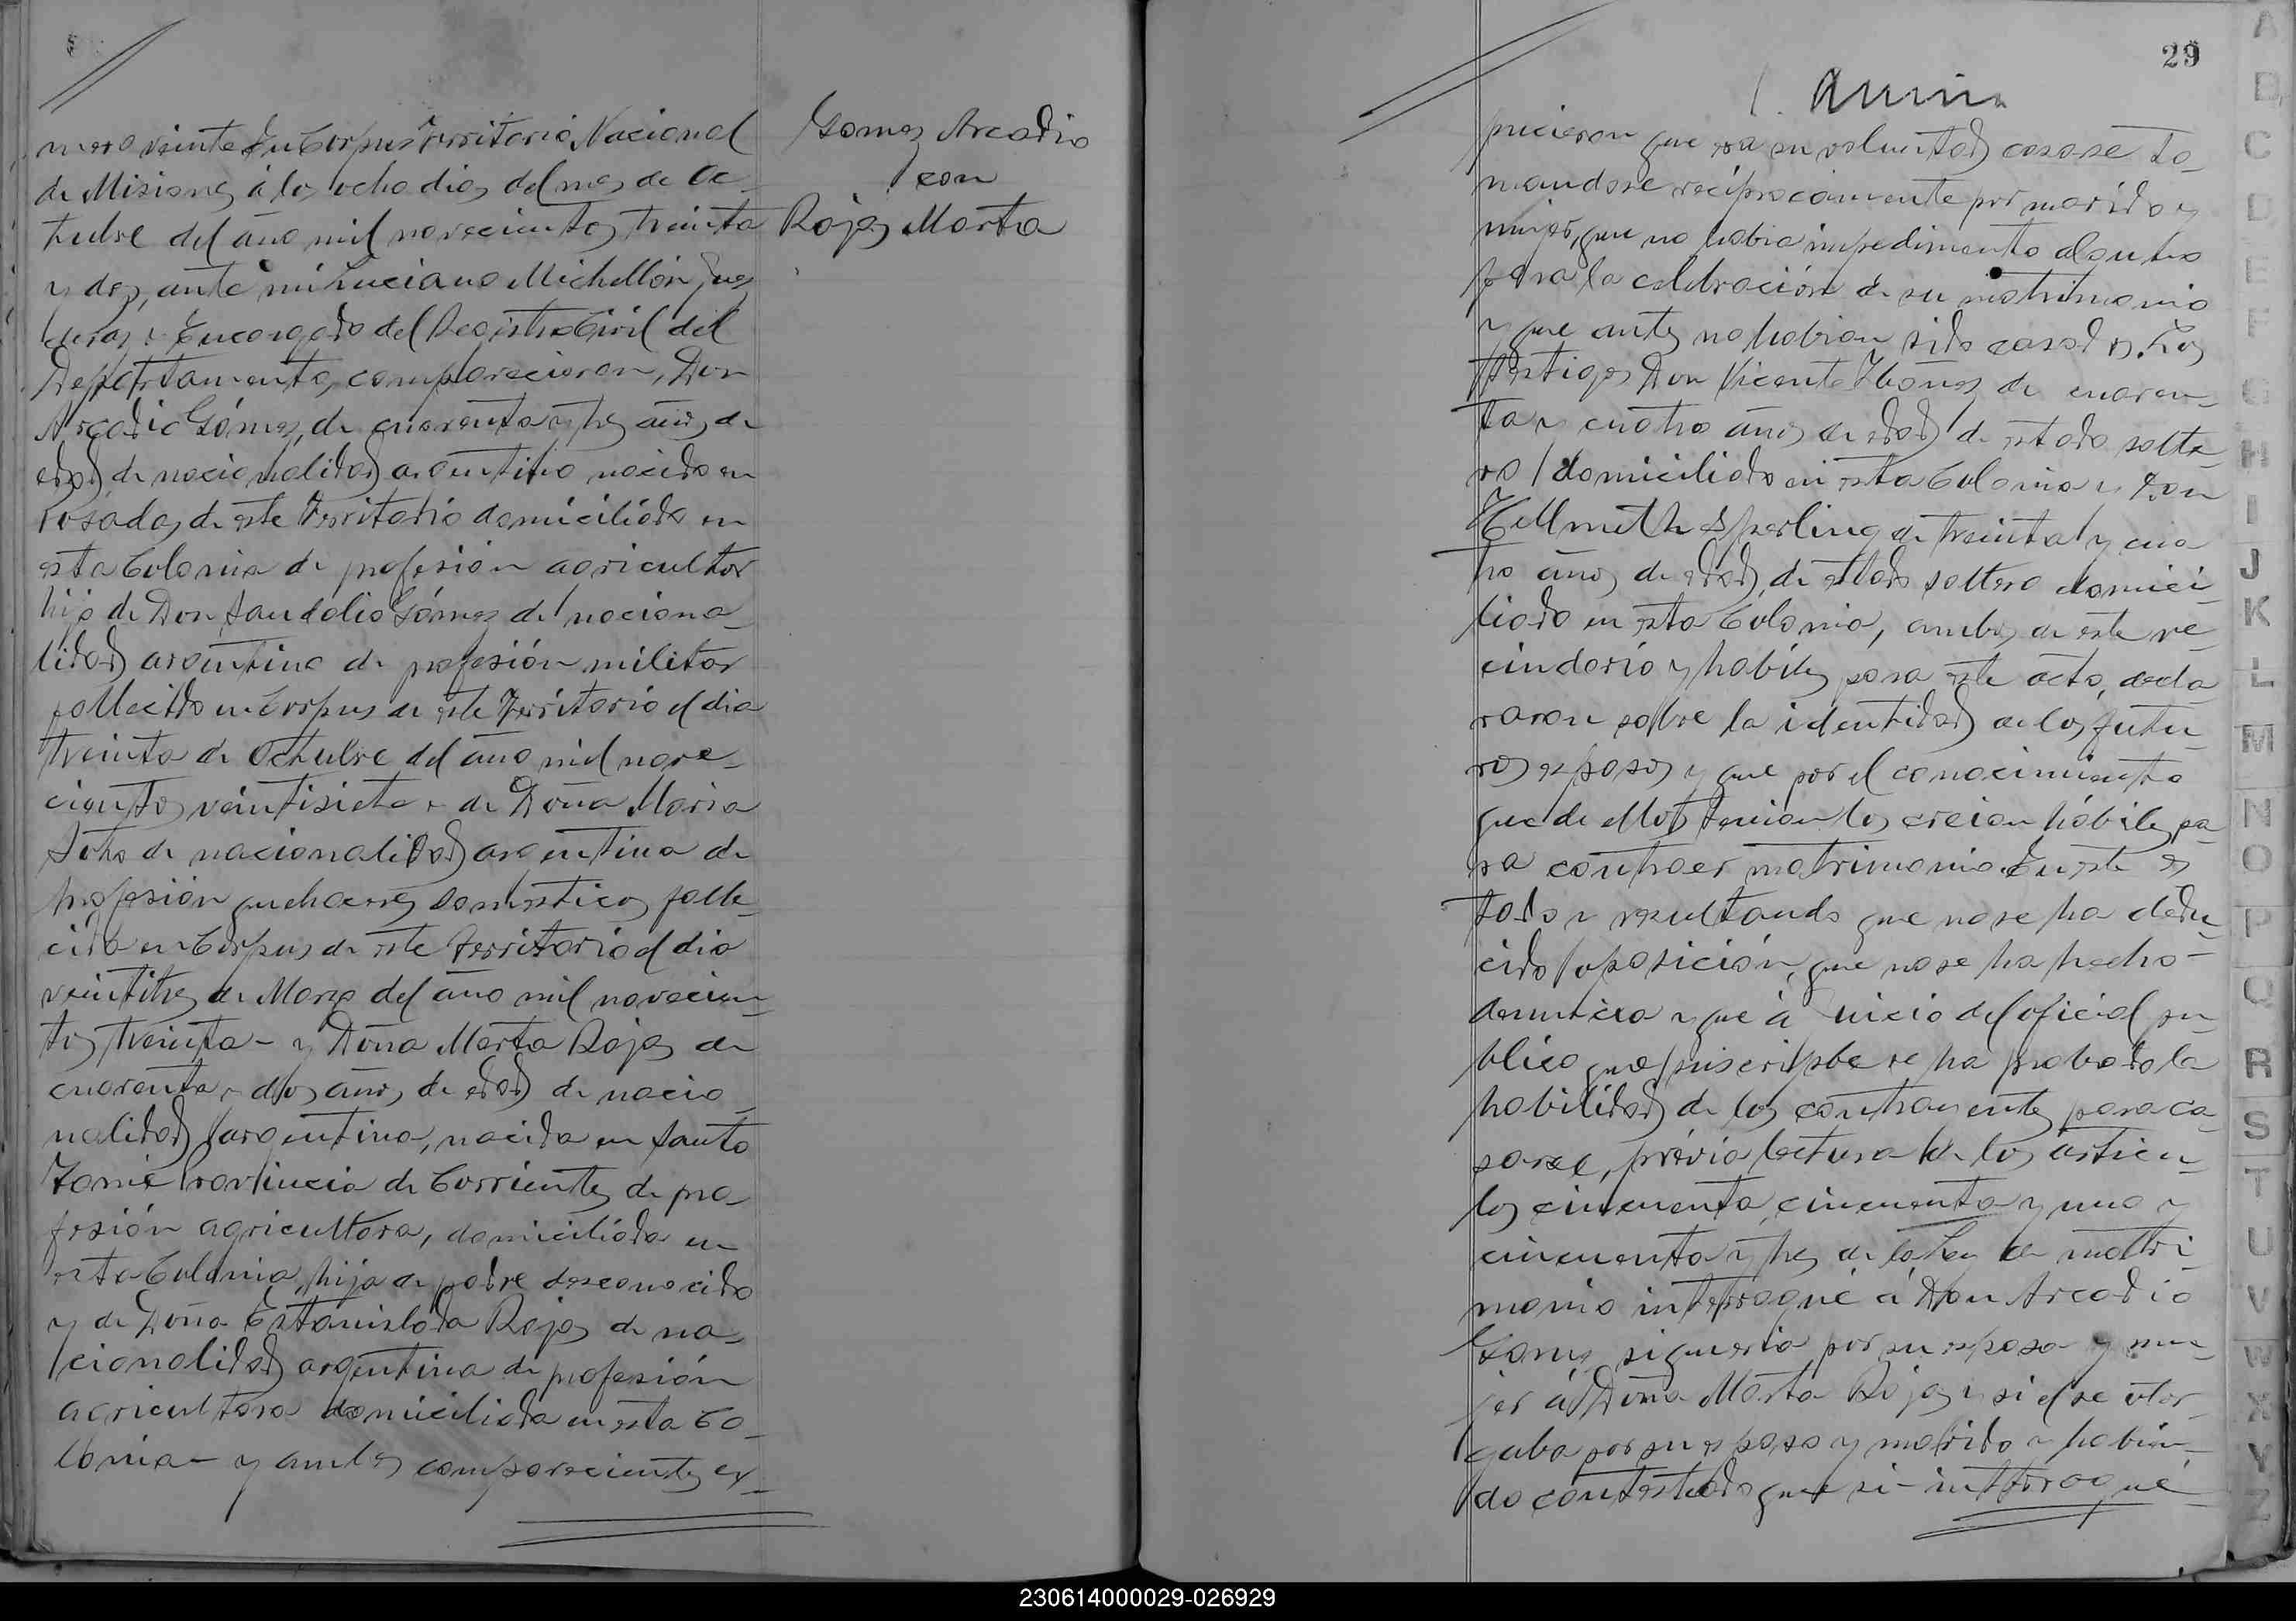 mero veinte. En Corpus Territorio Nacional
de Misiones á los ocho dias del mes de Oc-
tubre del año mil novecientos treinta
y dos, ante mi Luciano Michellón, Juez
de Paz y Encargado del Registro Civil del
Departamento, comparecieron, Don
Arcadio Gómez, de cuarenta y tres años de
edad de nacionalidad argentino nacido en
Posadas de este Territorio domiciliado en
esta Colonia de profesión agricultor
hijo de Don Sandalio Gómez de naciona-
lidad argentino de profesión militar
fallecido en Corpus de este Territorio el dia
treinta de Octubre del año mil nove-
cientos veintisiete y de Doña Maria
Soto de nacionalidad argentina de
profesión quehaceres domésticos falle-
cida en Corpus de este Territorio el dia
veintitres de Marzo del año mil novecien-
tos treinta - y Doña Marta Rojas de
cuarenta y dos años de edad de nacio-
nalidad argentina, nacida en Santo
Tomé Provincia de Corrientes de pro-
fesión agricultora, domiciliada en
esta Colonia, hija de padre desconocido
y de Doña Estanislada Rojas de na-
cionalidad argentina de profesión
agricultora domiciliada en esta Co-
lonia - y ambos comparecientes ex-
Gomez Arcadio
con
Rojas Marta
29
pucieron que era su voluntad casarse to-
mandose reciprocamente por marido y
mujer, que no habia impedimento alguno
para la celebración de su matrimonio
y que antes no habian sido casados. Los
testigos Don Vicente Ibañez de cuaren-
ta y cuatro años de edad de estado solte-
ro domiciliado en esta Colonia y Don
Hellmuth Sperling de treinta y cua
tro años de edad, de estado soltero domici-
liado en esta Colonia, ambos de este ve-
cindario y habiles para este acto, decla
raron sobre la identidad de los futu-
ros esposos y que por el conocimiento
que de ellos tenian los creian hábiles pa-
ra contraer matrimonio. En este es
tado y resultando que no se ha dedu-
cido oposición, que no se ha hecho -
denuncia y que á juicio del oficial pu-
blico que suscribe se ha probado la
habilidad de los contrayentes para ca-
sarse, prévia lectura de los articu-
los cincuenta, cincuenta y uno y
cincuenta y tres de la Ley de matri-
monio interrogué á Don Arcadio
Gomez si queria por su esposa y mu-
jer á Doña Marta Rojas y si el se otor-
gaba por su esposo y marido y habien-
do contestado que si - interrogué
230614000029-026929
A
B
C
D
E
F
G
H
I
J
K
L
M
N
O
P
Q
R
S
T
U
V
W
X
Y
Z